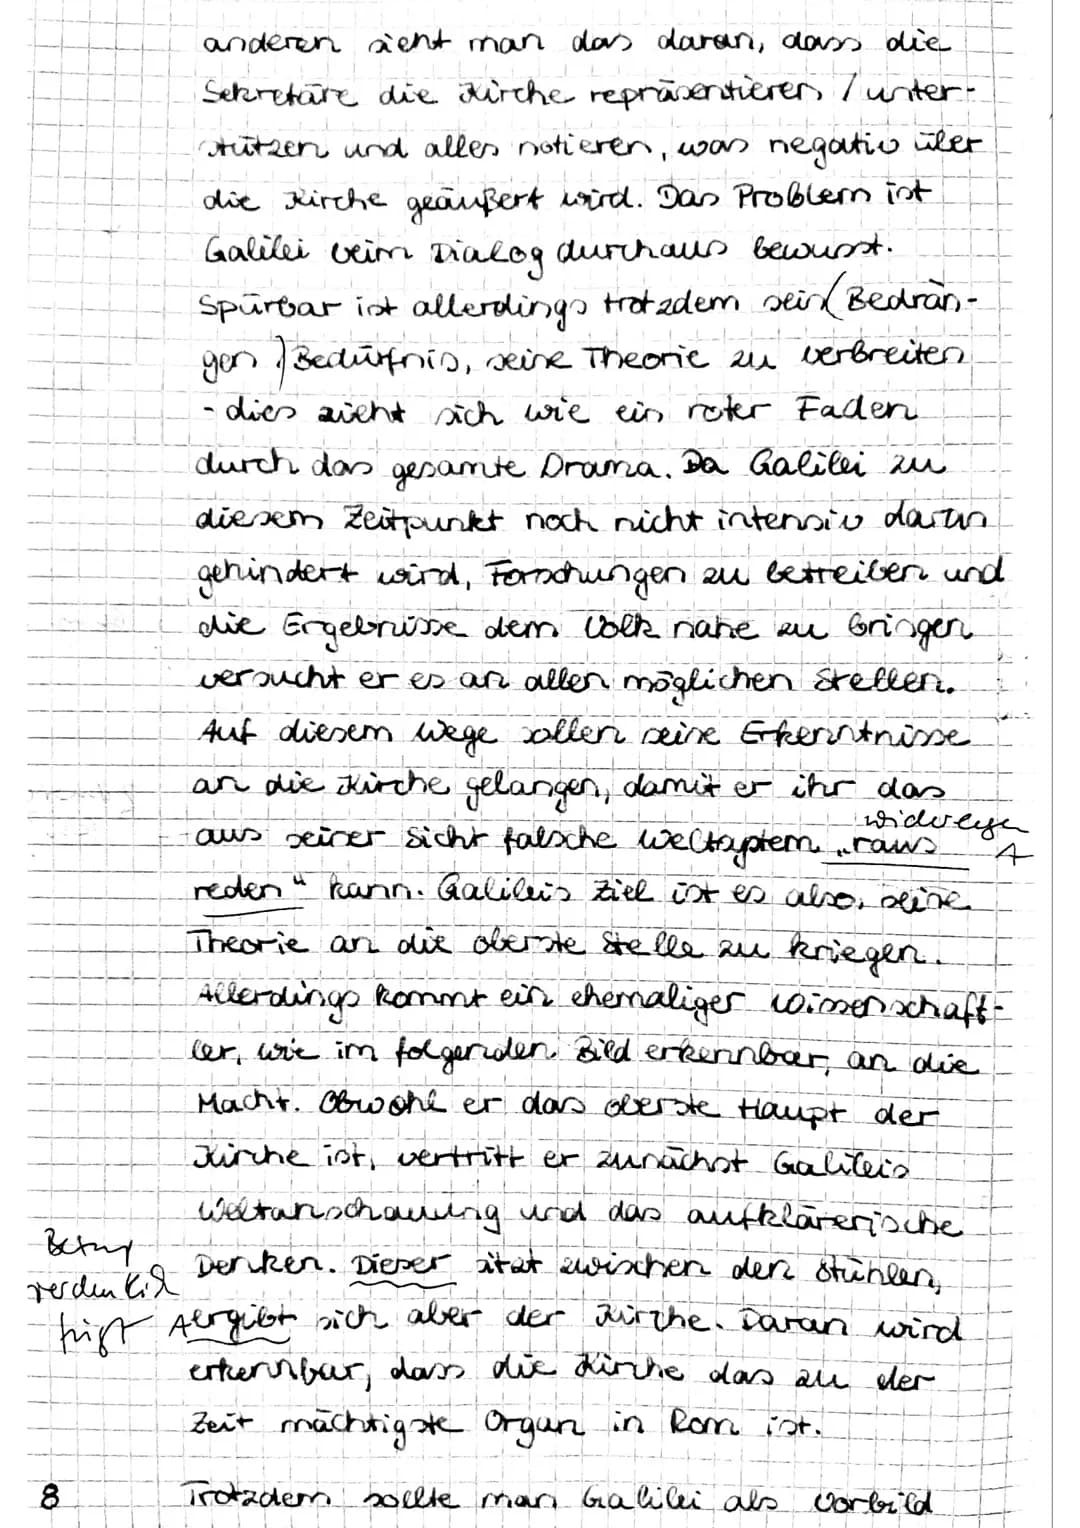 anderen sieht man das daran, dass die
Sekretäre die Kirche repräsentieren / unter-
stützen und alles notieren, was negativ über
die Kirche geäußert wird. Das Problem ist
Galilei beim Dialog durchaus bewusst.
Spürbar ist allerdings trotzdem sein (Bedrän-
gen) Bedürfnis, seine Theorie zu verbreiten
- dies zieht sich wie ein roter Faden
durch das gesamte Drama. Da Galilei zu
diesem Zeitpunkt noch nicht intensiv daran
gehindert wird, Forschungen zu betreiben und
die Ergebnisse dem Volk nahe zu bringen
versucht er es an allen möglichen Stellen.
Auf diesem Wege sollen seine Erkenntnisse
an die Kirche gelangen, damit er ihr das
aus seiner Sicht falsche Weltsystem „raus
A
reden“ kann. Galileis Ziel ist es also, seine
Theorie an die oberste Stelle zu kriegen.
Allerdings kommt ein ehemaliger Wissenschaft-
ler, wie im folgenden Bild erkennbar, an die
Macht. Obwohl er das oberste Haupt der
Kirche ist, vertritt er zunächst Galileis
Weltanschauung und das aufklärerische
Denken. Dieser sitzt zwischen den Stühlen,
A ergibt sich aber der Kirche. Daran wird
erkennbar, dass die Kirche das zu der
Zeit mächtigste Organ in Rom ist.
8 Trotzdem sollte man Galilei als Vorbild